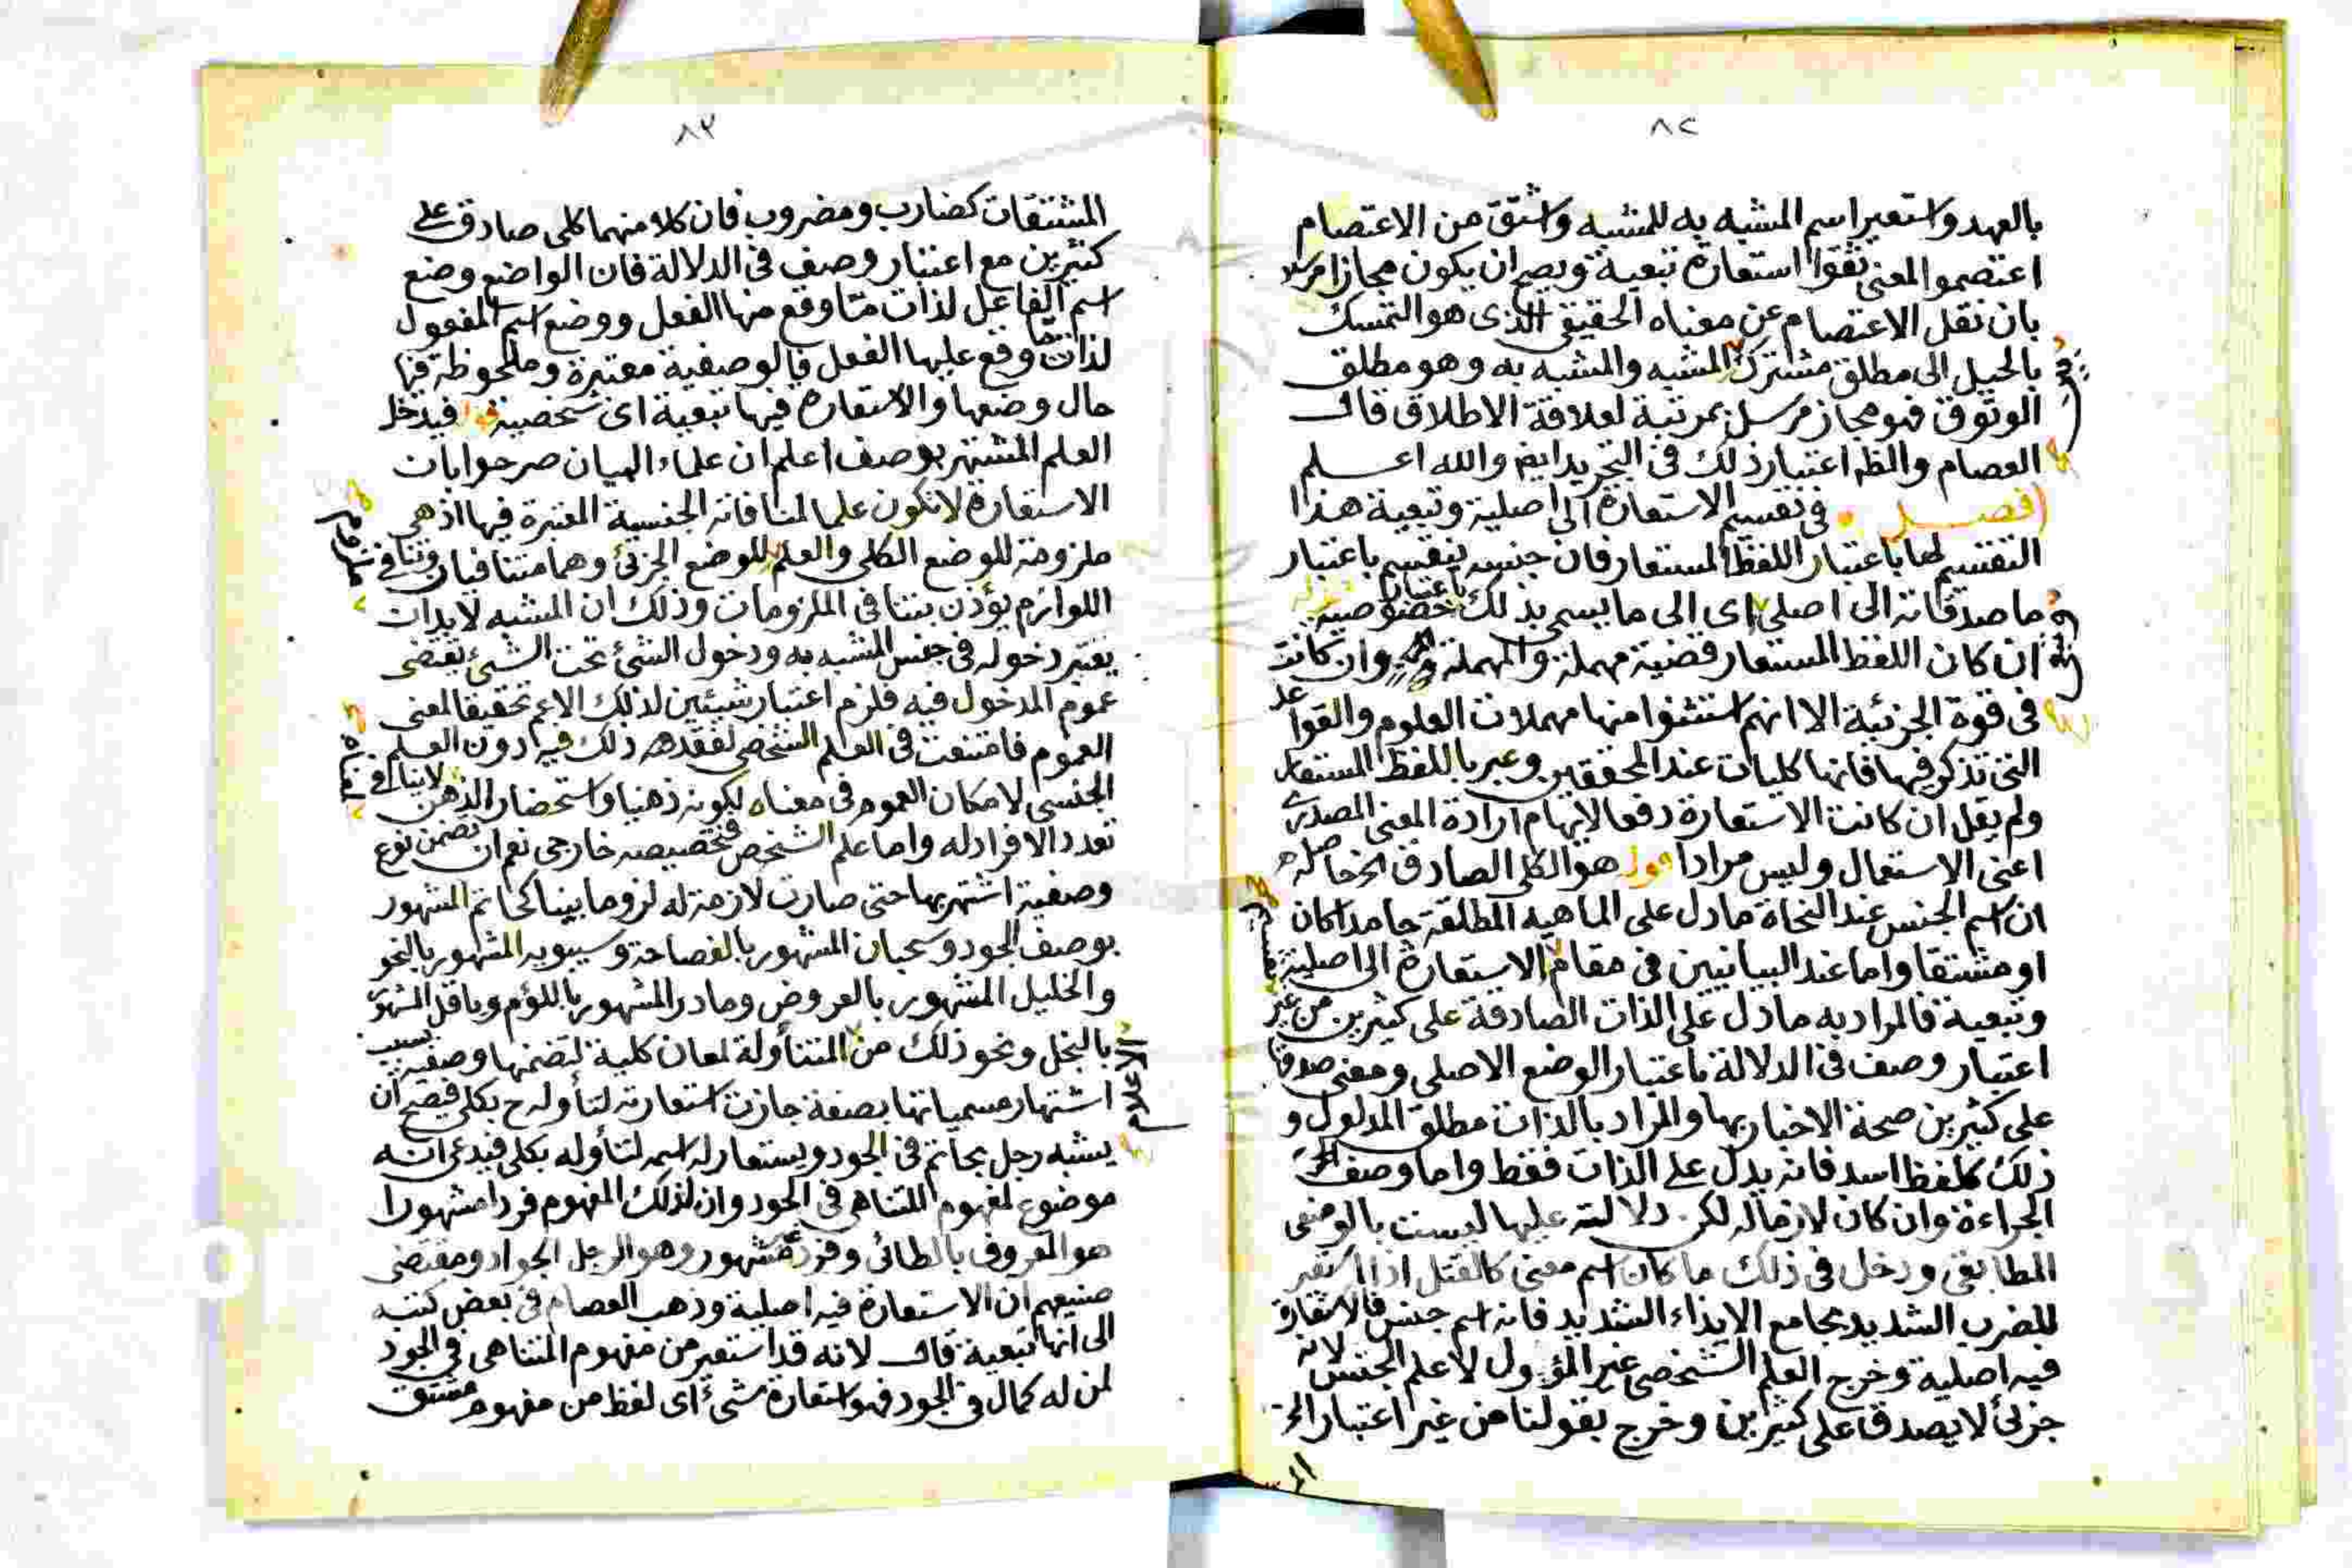 ٨٢
بالعهد واستعير اسم المشبه به للمشبه واشتق من الاعتصام
اعتصموا المعنى ثقوا استعارة تبعية ويصح ان يكون مجازا مرسلا
بان نقل الاعتصام عن معناه الحقيقى الذى هو التمسك
بالحبل الى مطلق مشترك المشبه والمشبه به وهو مطلق
الوثوق فهو مجاز مرسل بمرتبة لعلاقة الاطلاق قال
العصام والظ اعتبار ذلك فى التجريد ايض والله اعلم
فصل فى تقسيم الاستعارة الى اصلية وتبعية هذا
التقسيم لها باعتبار اللفظ المستعار فان جنسه ينقسم باعتبار
ما صدقاته الى اصلى اى الى ما يسمى بذلك باعتبار خصوصية
ان كان اللفظ المستعار قضية مهملة والمهملة وان كانت
فى قوة الجزئية الا انهم استثنوا منها مهملات العلوم والقواعد
التى تذكر فيها فانها كليات عند المحققين وعبر باللفظ المستعار
ولم يقل ان كانت الاستعارة دفعا لايهام ارادة المعنى المصدرى
اعنى الاستعمال وليس مرادا هو الكلى الصادق الخ حاصله
ان اسم الجنس عند النحاة ما دل على الماهية المطلقة جامدا كان
او مشتقا واما عند البيانيين فى مقام الاستعارة الى اصلية
وتبعية فالمراد به ما دل على الذات الصادقة على كثيرين من غير
اعتبار وصف فى الدلالة باعتبار الوضع الاصلى ومعنى صدقها
على كثيرين صحة الاخبار بها والمراد بالذات مطلق المدلول و
ذلك كلفظ اسد فانه يدل على الذات فقط واما وصف
الجراءة وان كان لازما له لكن دلالته عليها ليست بالوضعى
المطابقى ودخل فى ذلك ما كان اسم معنى كالقتل اذا استعير
للضرب الشديد بجامع الايذاء الشديد فانه اسم جنس فالاستعارة
فيه اصلية وخرج العلم الشخصى غير المؤول لا علم الجنس لانه
جزئى لا يصدق على كثيرين وخرج بقولنا من غير اعتبار الخ
٨٣
المشتقات كضارب ومضروب فان كلا منهما كلى صادق على
كثيرين مع اعتبار وصف فى الدلالة فان الواضع وضع
اسم الفاعل لذات ما وقع منها الفعل ووضع اسم المفعول
لذات ما وقع عليها الفعل فالوصفية معتبرة وملحوظة فيها
حال وضعها والاستعارة فيها تبعية اى شخصية فيدخل
العلم المشتهر بوصف اعلم ان علماء البيان صرحوا بان
الاستعارة لا تكون علما لمنافاته الجنسية المعتبرة فيها اذ هى
ملزومة للوضع الكلى والعلم للوضع الجزئى وهما متنافيان وتنافى
اللوازم يؤذن بتنافى الملزومات وذلك ان المشبه لا بد ان
يعتبر دخوله فى جنس المشبه به ودخول الشئ تحت الشئ يقتضى
عموم المدخول فيه فلزم اعتبار شيئين لذلك الاعم تحقيقا لمعنى
العموم فامتنعت فى العلم الشخصى لفقد ذلك فيه دون العلم
الجنسى لامكان العموم فى معناه لكونه ذهنيا واستحضار الذهن لا ينافى
تعدد الافراد له واما علم الشخص فتخصيصه خارجى نعم ان تضمن نوع
وصفية اشتهر بها حتى صارت لازمة له لزوما بينا كحاتم المشهور
بوصف الجود وسحبان المشهور بالفصاحة وسيبويه المشهور بالنحو
والخليل المشهور بالعروض ومادر المشهور باللؤم وباقل المشهور
بالبخل ونحو ذلك من المتناولة لمعان كلية لتضمنها وصفية بسبب
اشتهار مسمياتها بصفة جازت استعارته لتأوله ح بكلى فيصح ان
يشبه رجل بحاتم فى الجود ويستعار له اسمه لتأوله بكلى فيدعى انه
موضوع لمفهوم المتناهى فى الجود وان لذلك المفهوم فردا مشهورا
هو المعروف بالطائى وفرد غير مشهور وهو الرجل الجواد ومقتضى
صنيعهم ان الاستعارة فيه اصلية وذهب العصام فى بعض كتبه
الى انها تبعية قال لانه قد استعير من مفهوم المتناهى فى الجود
لمن له كمال فى الجود فهو استعارة شئ اى لفظ من مفهوم مشتق